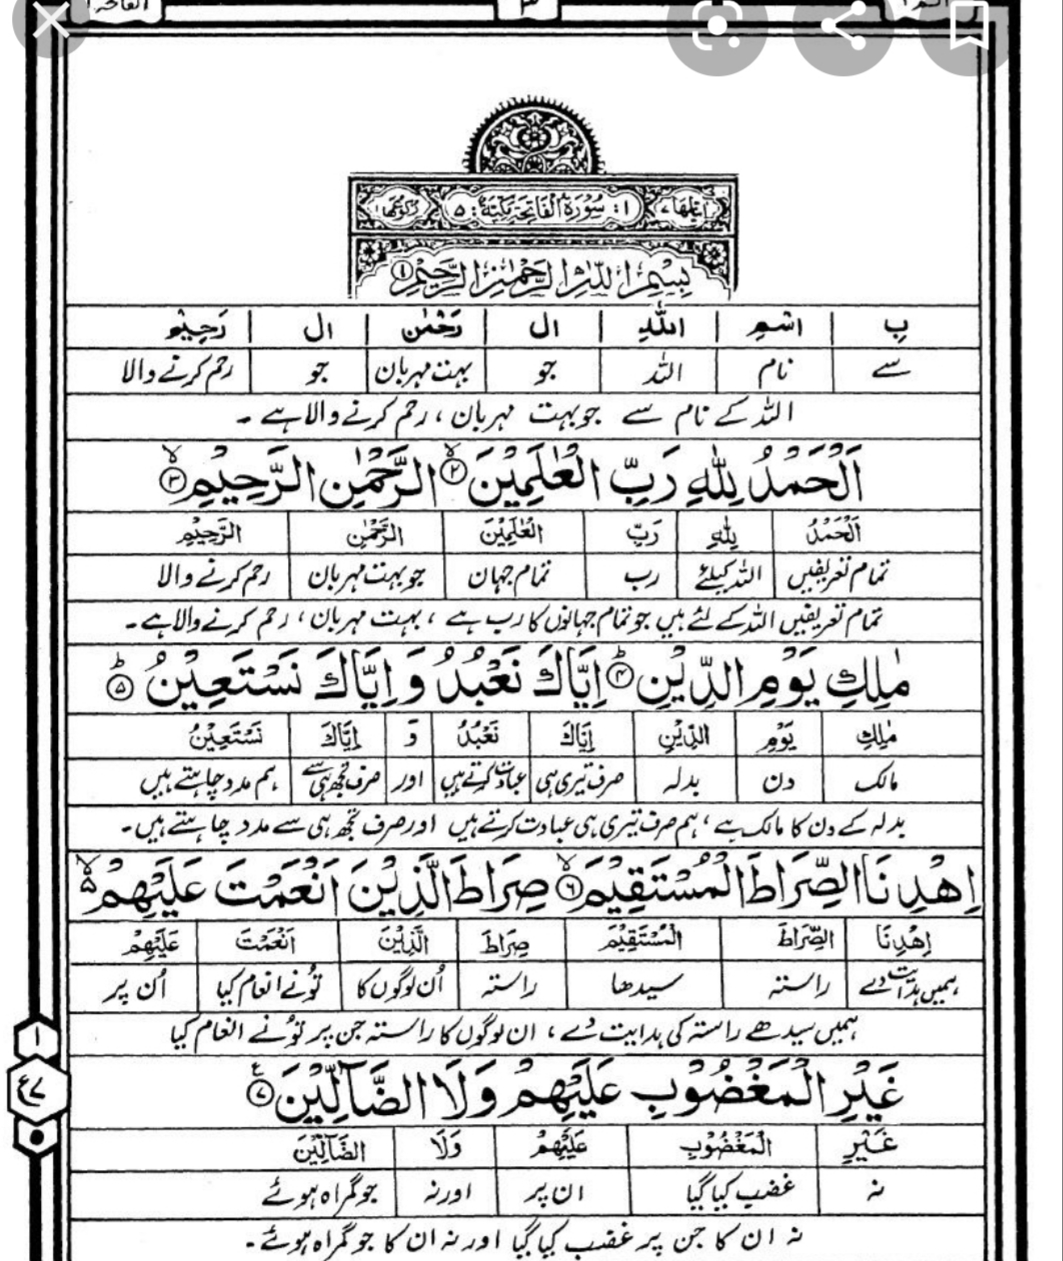 الفاتحہ ٣ الم ١
اٰیٰتُهَا ٧ ١: سُوْرَةُ الْفَاتِحَةِ مَكِّيَّةٌ: ٥ رُكُوْعُهَا ١
بِسْمِ اللّٰهِ الرَّحْمٰنِ الرَّحِيْمِ ١
بِ اسْمِ اللّٰهِ ال رَحْمٰن ال رَحِيْمِ
سے نام اللہ جو بہت مہربان جو رحم کرنے والا
اللہ کے نام سے جو بہت مہربان ، رحم کرنے والا ہے ۔
اَلْحَمْدُ لِلّٰهِ رَبِّ الْعٰلَمِيْنَ ٢ لا الرَّحْمٰنِ الرَّحِيْمِ ٣ لا
اَلْحَمْدُ لِلّٰهِ رَبِّ الْعٰلَمِيْنَ الرَّحْمٰنِ الرَّحِيْمِ
تمام تعریفیں اللہ کیلئے رب تمام جہان جو بہت مہربان رحم کرنے والا
تمام تعریفیں اللہ کے لئے ہیں جو تمام جہانوں کا رب ہے ، بہت مہربان ، رحم کرنے والا ہے ۔
مٰلِكِ يَوْمِ الدِّيْنِ ٤ ط اِيَّاكَ نَعْبُدُ وَ اِيَّاكَ نَسْتَعِيْنُ ٥ ط
مٰلِكِ يَوْمِ الدِّيْنِ اِيَّاكَ نَعْبُدُ وَ اِيَّاكَ نَسْتَعِيْنُ
مالک دن بدلہ صرف تیری ہی عبادت کرتے ہیں اور صرف تجھ ہی سے ہم مدد چاہتے ہیں
بدلہ کے دن کا مالک ہے ، ہم صرف تیری ہی عبادت کرتے ہیں اور صرف تجھ ہی سے مدد چاہتے ہیں ۔
اِهْدِنَا الصِّرَاطَ الْمُسْتَقِيْمَ ٦ لا صِرَاطَ الَّذِيْنَ اَنْعَمْتَ عَلَيْهِمْ ۵ لا
اِهْدِنَا الصِّرَاطَ الْمُسْتَقِيْمَ صِرَاطَ الَّذِيْنَ اَنْعَمْتَ عَلَيْهِمْ
ہمیں ہدایت دے راستہ سیدھا راستہ اُن لوگوں کا تُو نے انعام کیا اُن پر
ہمیں سیدھے راستہ کی ہدایت دے ، ان لوگوں کا راستہ جن پر تُو نے انعام کیا
غَيْرِ الْمَغْضُوْبِ عَلَيْهِمْ وَلَا الضَّآلِّيْنَ ٧ ع
غَيْرِ الْمَغْضُوْبِ عَلَيْهِمْ وَلَا الضَّآلِّيْنَ
نہ غضب کیا گیا ان پر اور نہ جو گمراہ ہوئے
نہ ان کا جن پر غضب کیا گیا اور نہ ان کا جو گمراہ ہوئے ۔
١
ع ٧